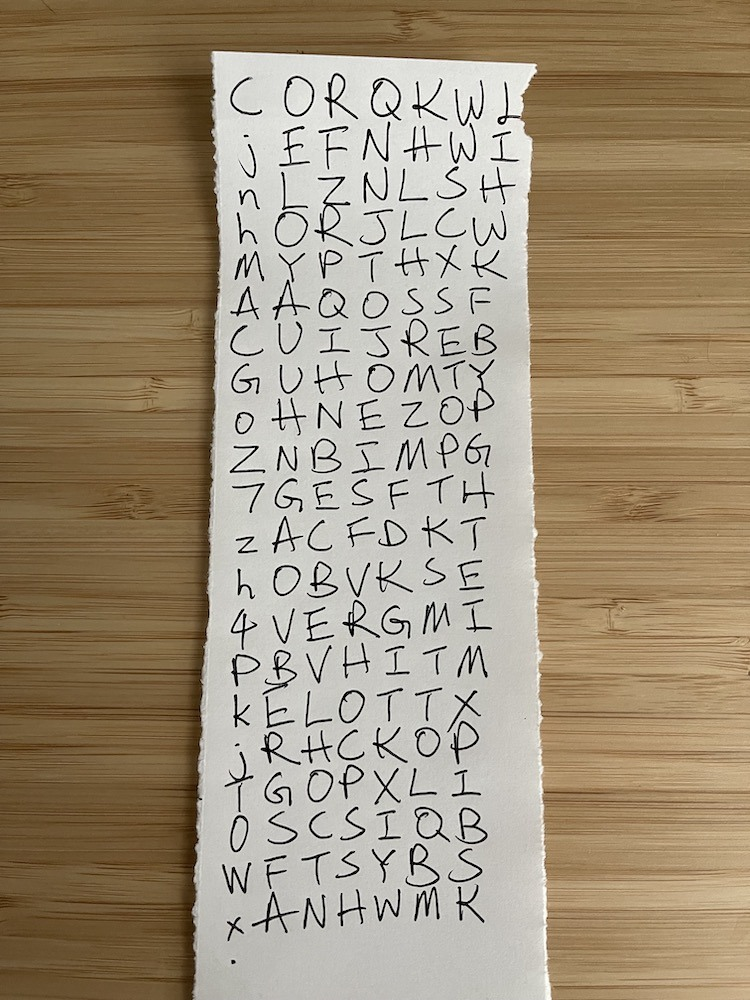 C O R Q K W L
j E F N H W I
n L Z N L S H
h O R J L C W
M Y P T H X K
A A Q O S S F
C U I J R E B
G U H O M T Y
o H N E Z O P
Z N B I M P G
7 G E S F T H
z A C F D K T
h O B V K S E
4 V E R G M I
P B V H I T M
k E L O T T X
j R H C K O P
T G O P X L I
0 S C S I Q B
W F T S Y B S
x A N H W M K
.